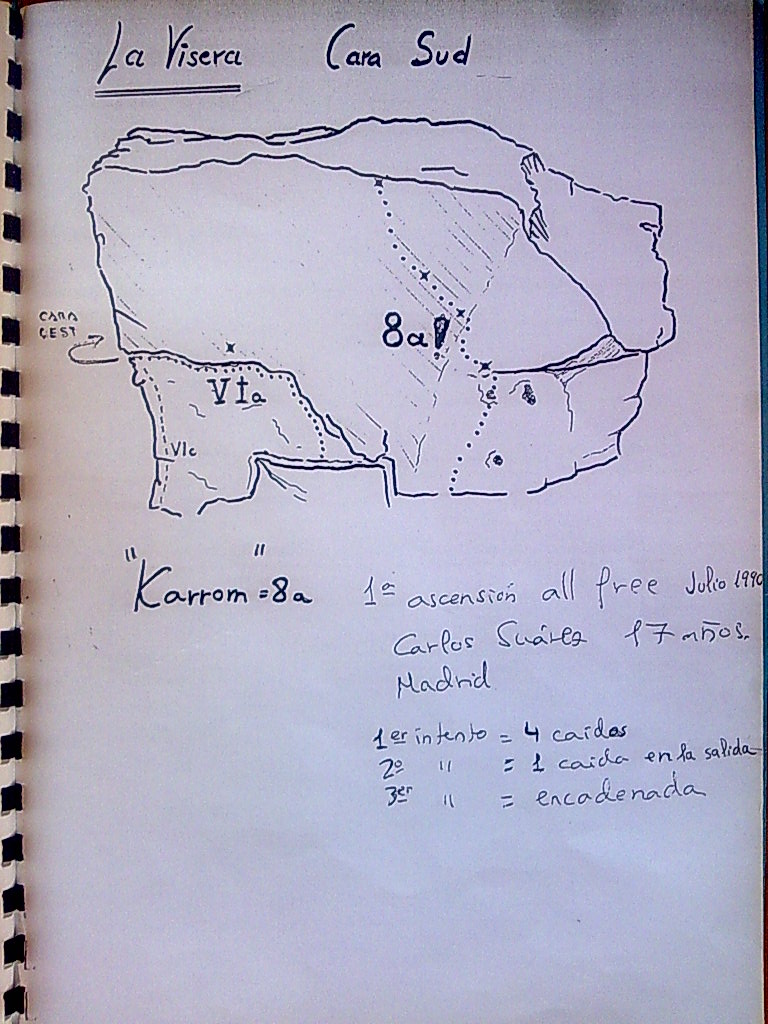 La Visera Cara Sud
8a
CARA
VIa
VIc
"Karrom" = 8a
1ª ascensión all free Julio 1990
Carlos Suárez 17 años.
Madrid
1er intento = 4 caidas
2º " = 1 caida en la salida
3er " = encadenada